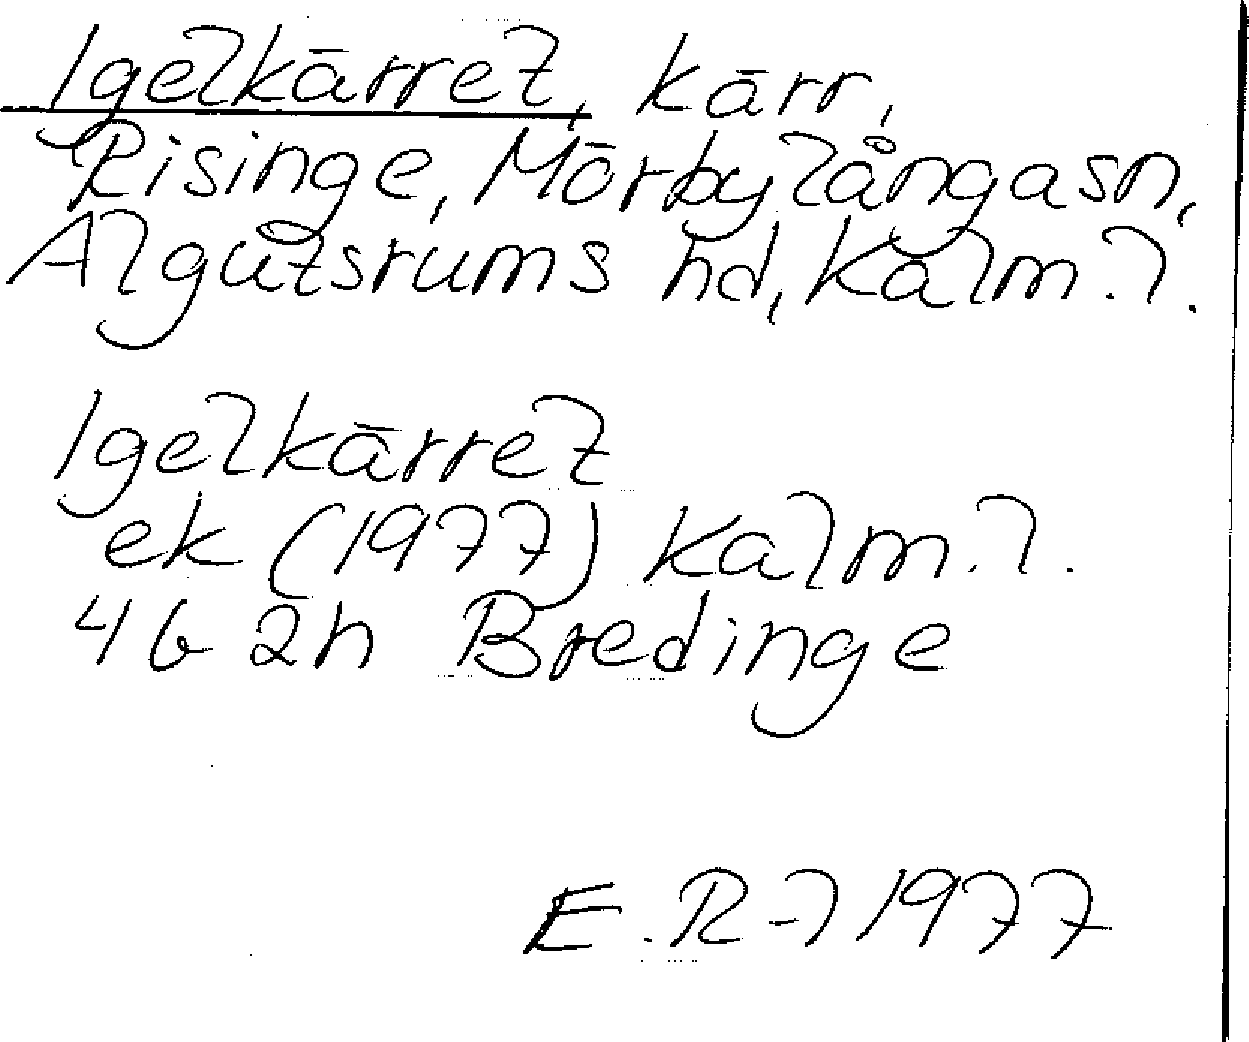 Igelkärret, kärr,
Risinge, Mörbylångasn,
Algutsrums hd, Kalm. l.
Igelkärret
ek (1977) Kalm. l.
4G 2h Bredinge
E. R-7 1977